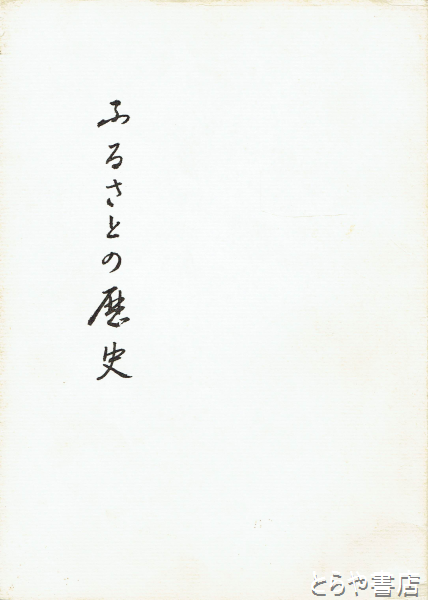 ふるさとの歴史
とらや書店